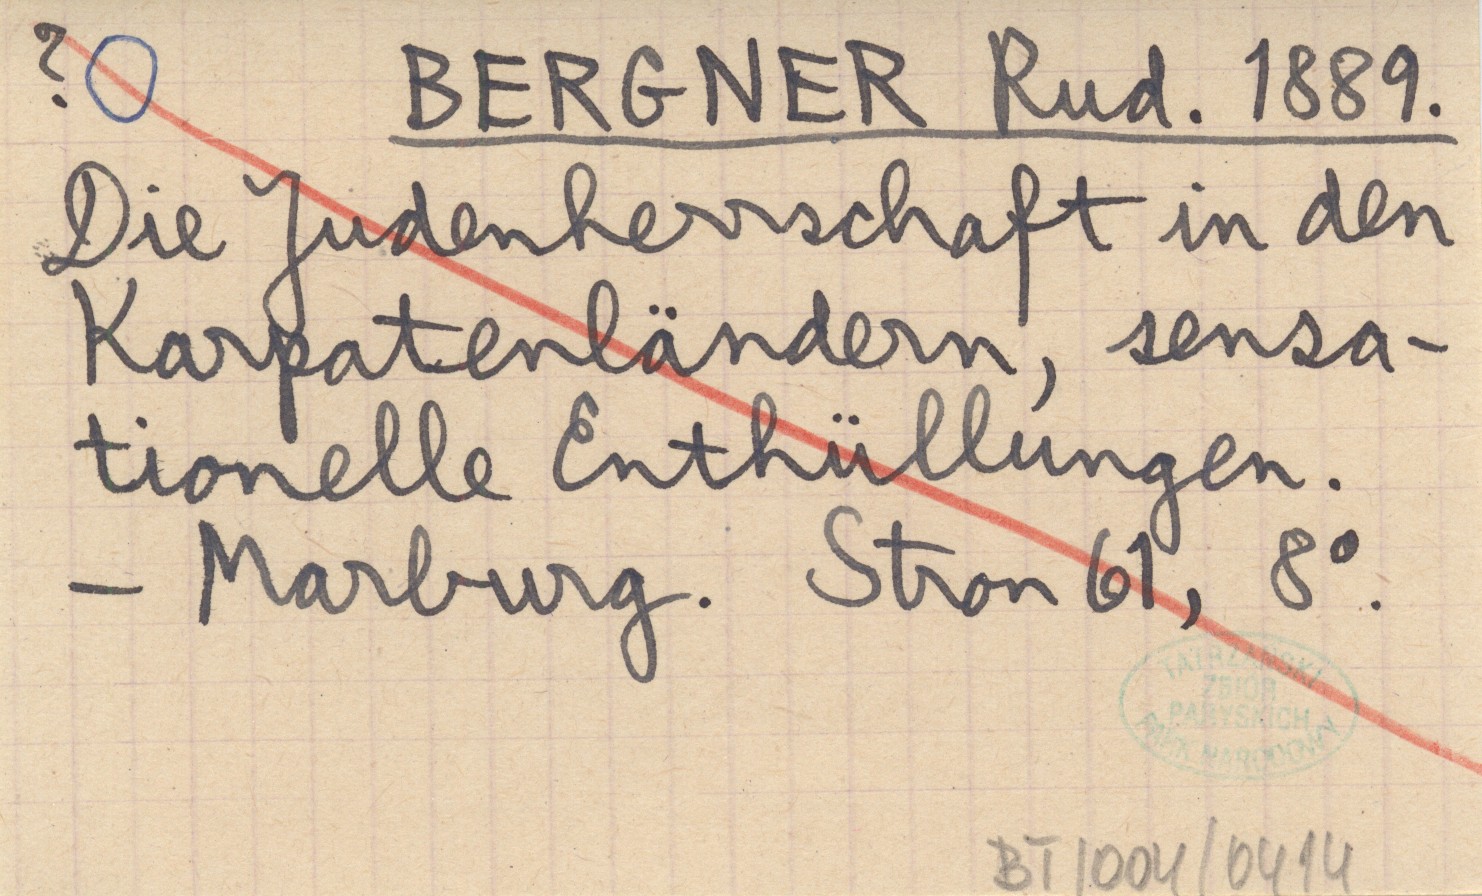 ? BERGNER Rud. 1889.
Die Judenherrschaft in den
Karpatenländern, sensa-
tionelle Enthüllungen.
– Marburg. Stron 61, 8°.
TATRZAŃSKI
ZBIÓR
PARYSKICH
PARK NARODOWY
BT/004/0414